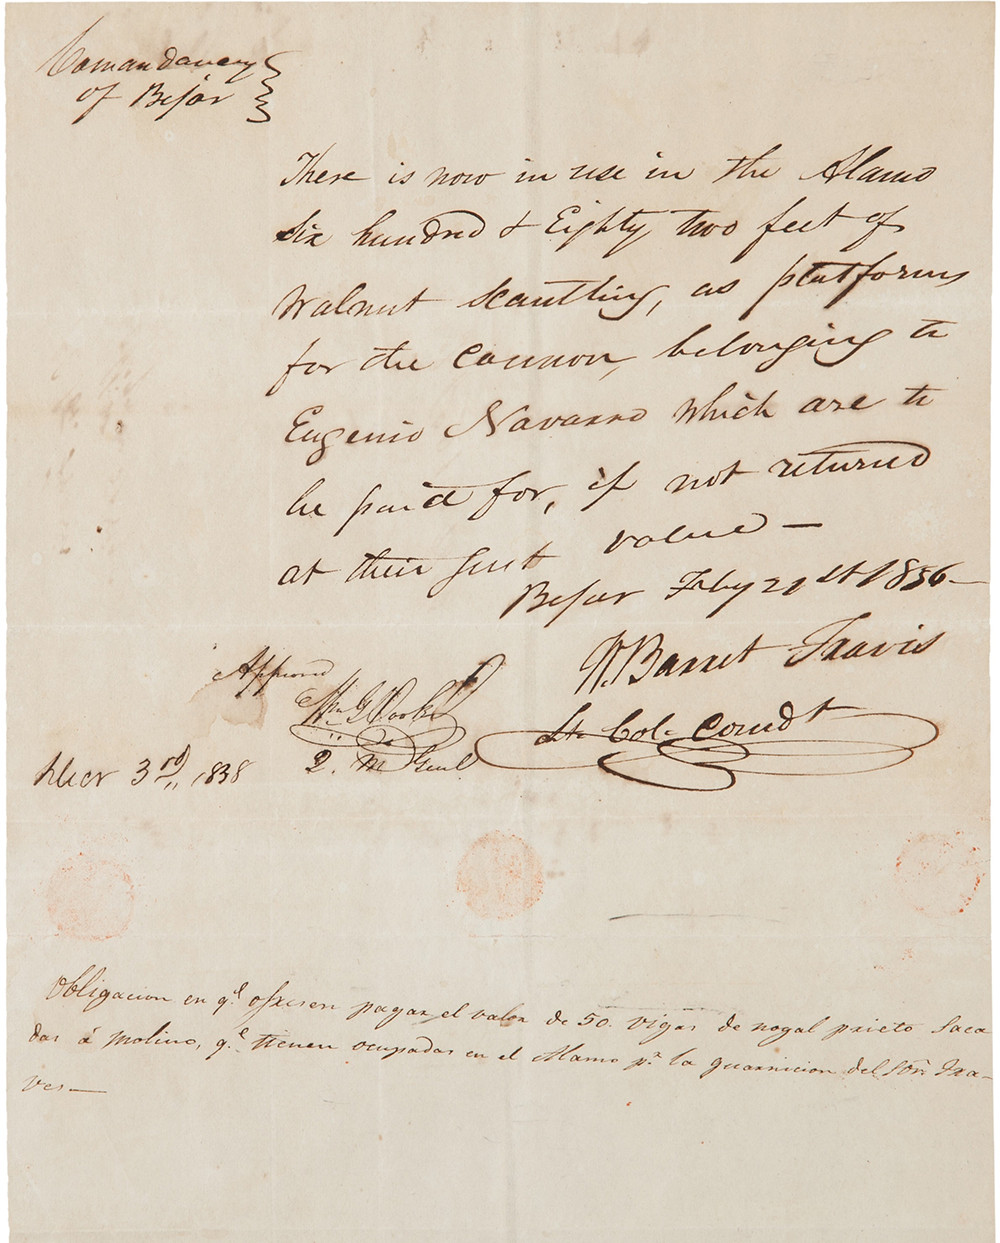 Comandancy
of Bejar
There is now in use in the Alamo
Six hundred & Eighty two feet of
Walnut Scantling, as platforms
for the Cannon, belonging to
Eugenio Navarro which are to
be paid for, if not returned
at their just value —
Bejar Feby 21st 1836 —
W. Barret Travis
Lt. Col. Comdt
Approved
Wm G Cooke
Q. M Genl.
Decr 3rd, 1838
Obligacion en qe. ofresen pagar el valor de 50. vigas de nogal prieto saca
das á molino, qe. tienen ocupadas en el Alamo pa. la guarnicion del Sor. Tra-
ves —